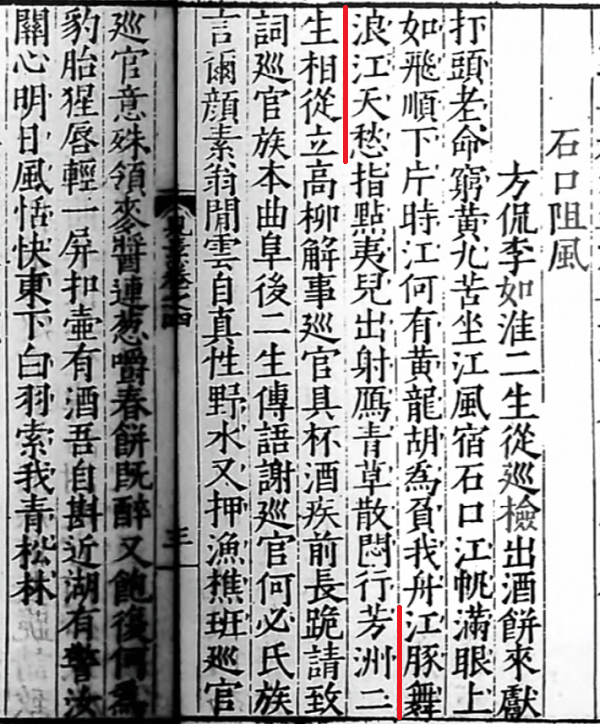 石口阻風
方侃李如淮二生從巡檢出酒餅來獻
打頭老命窮黃九苦坐江風宿石口江帆滿眼上
如飛順下片時江何有黃龍胡為負我舟江豚舞
浪江天愁指點夷兒出射鴈青草散悶行芳洲二
生相從立高柳解事巡官具杯酒疾前長跪請致
詞巡官族本曲阜後二生傳語謝巡官何必氏族
言爾顏素翁閒雲自真性野水又押漁樵班巡官
卷之四
三
巡官意殊領麥醬連葱嚼春餅既醉又飽復何為
豹胎猩唇輕一屏扣壺有酒吾自斟近湖有警汝
關心明日風恬快東下白羽索我青松林